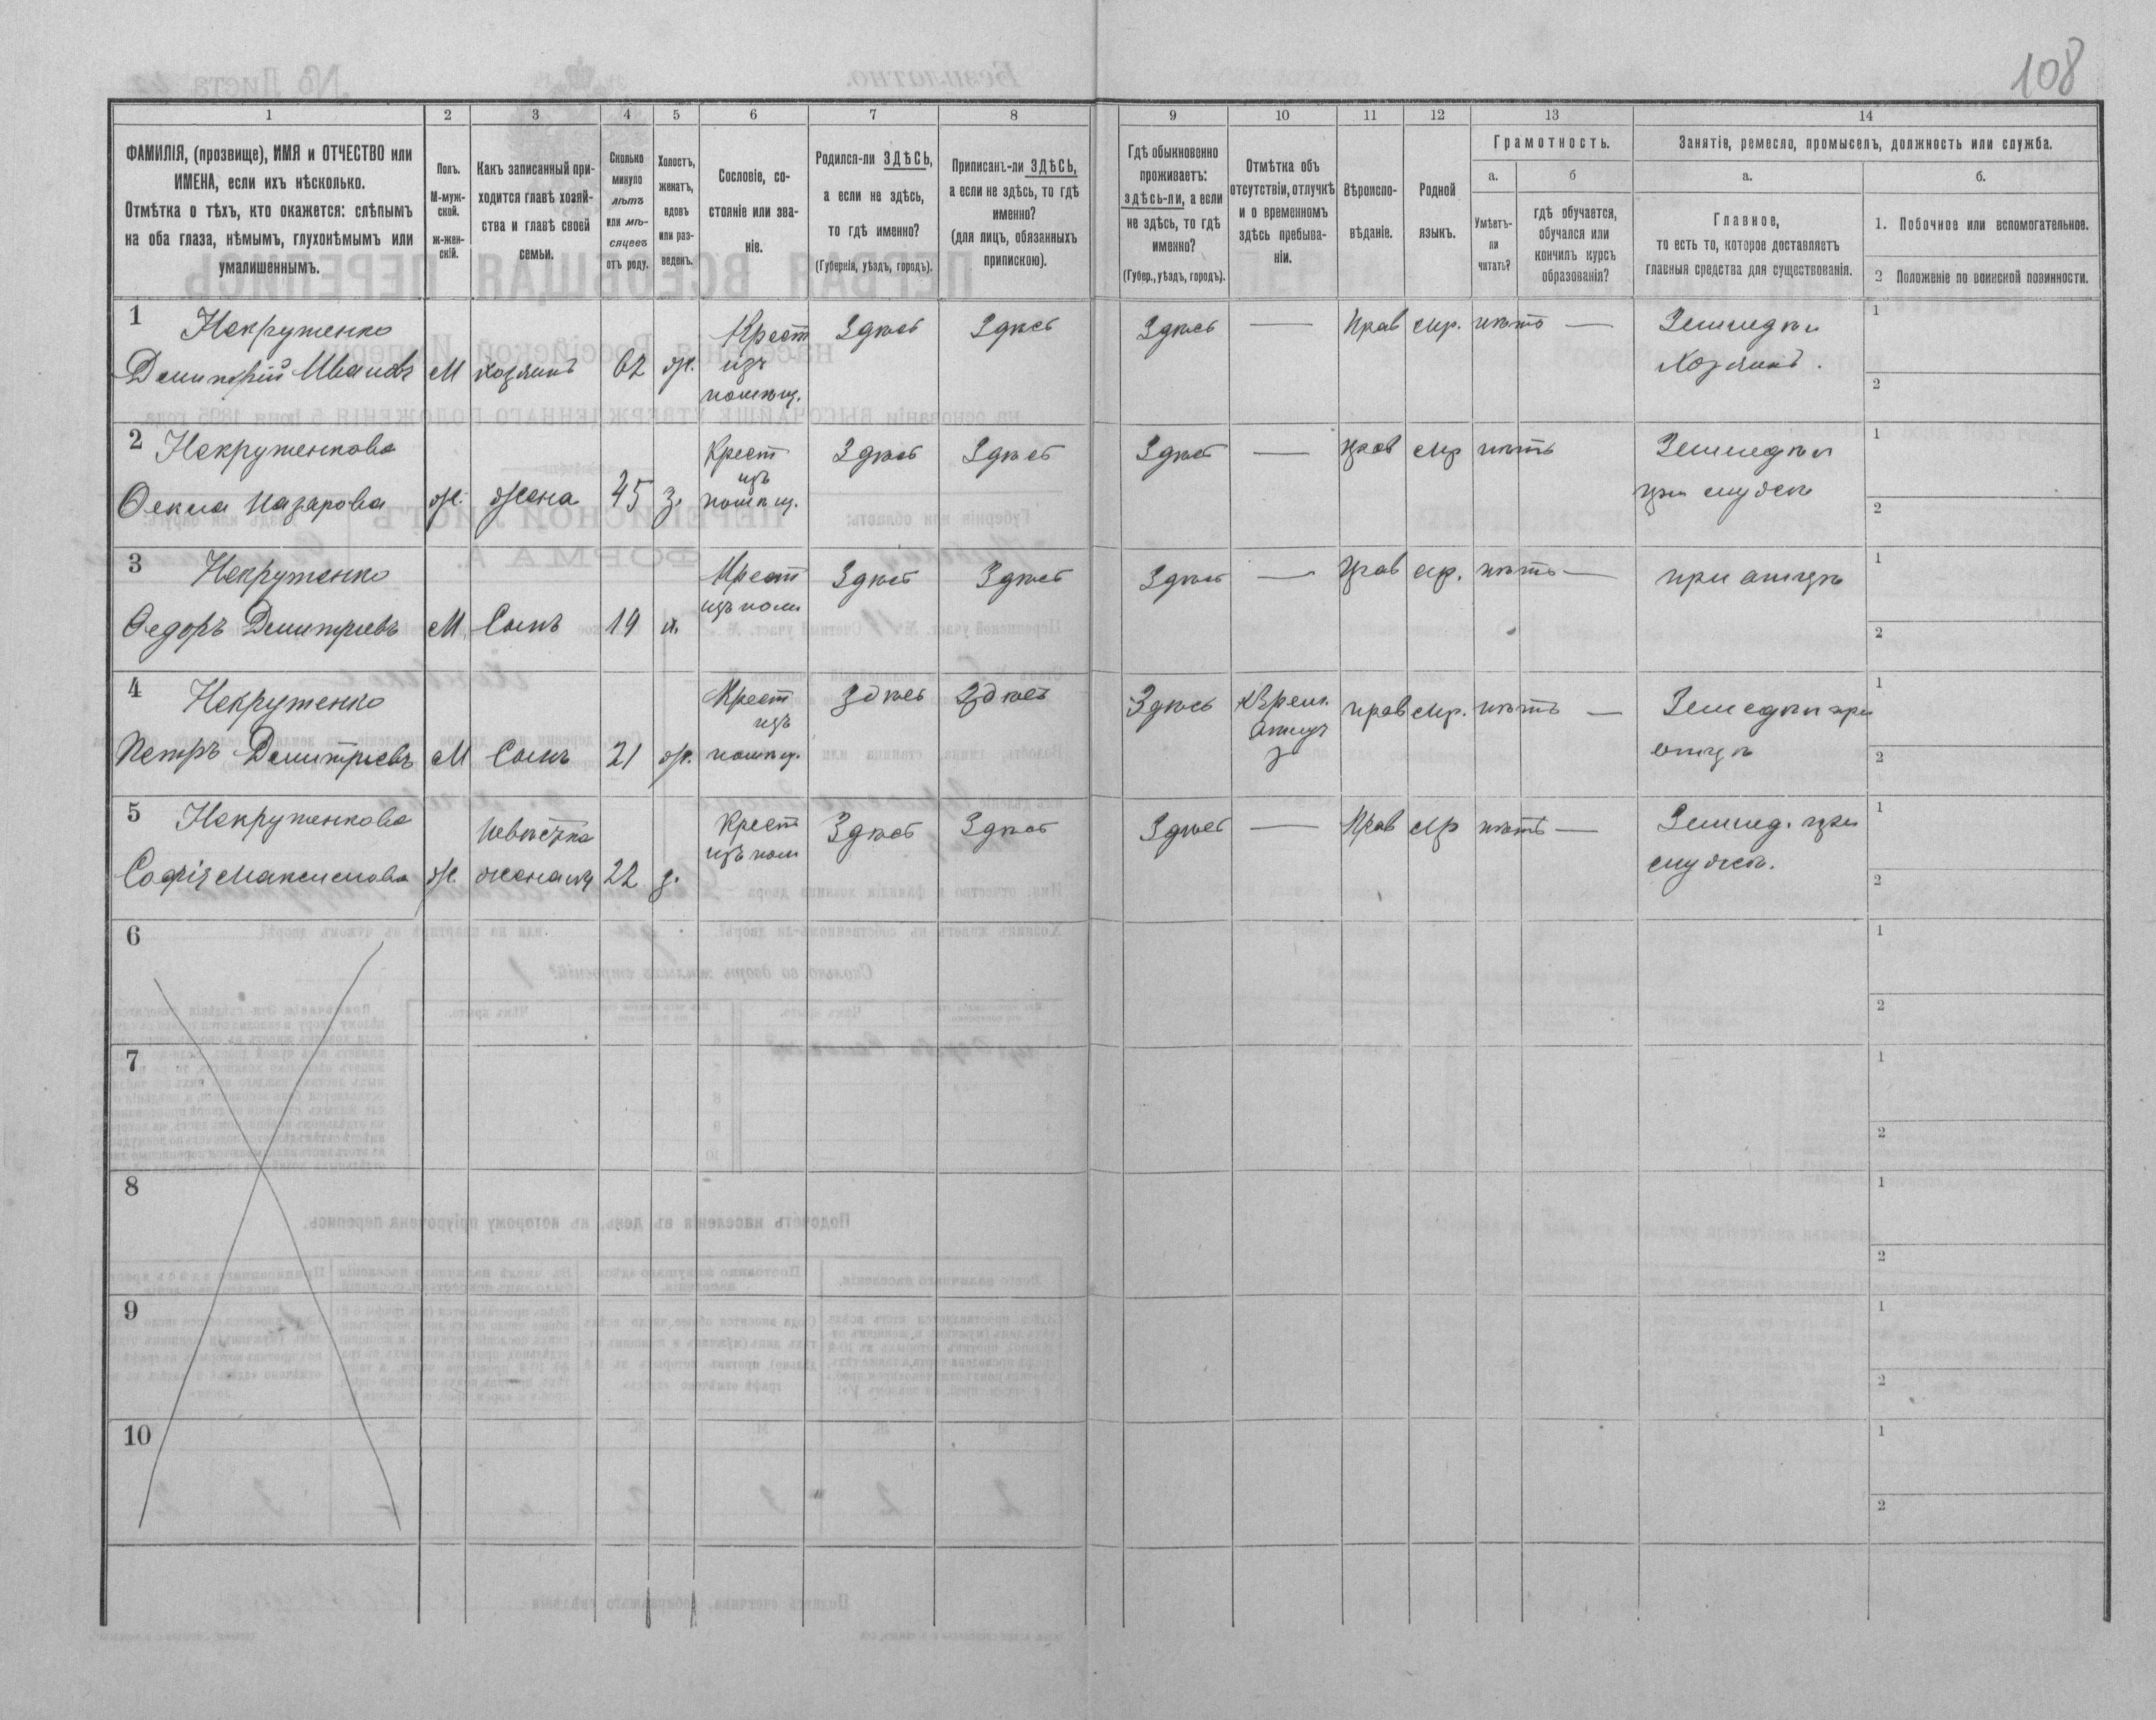 108
1
2
3
4
5
6
7
8
9
10
11
12
13
14
ФАМИЛІЯ, (прозвище), ИМЯ и ОТЧЕСТВО или
ИМЕНА, если ихъ нѣсколько.
Отмѣтка о тѣхъ, кто окажется: слѣпымъ
на оба глаза, нѣмымъ, глухонѣмымъ или
умалишеннымъ.
Полъ.
М-муж-
ской.
ж-жен-
скій.
Какъ записанный при-
ходится главѣ хозяй-
ства и главѣ своей
семьи.
Сколько
минуло
лѣтъ
или мѣ-
сяцевъ
отъ роду.
Холостъ,
женатъ,
вдовъ
или раз-
веденъ.
Сословіе, со-
стояніе или зва-
ніе.
Родился-ли ЗДѢСЬ,
а если не здѣсь,
то гдѣ именно?
(Губернія, уѣздъ, городъ).
Приписанъ-ли ЗДѢСЬ,
а если не здѣсь, то гдѣ
именно?
(для лицъ, обязанныхъ
припискою).
Гдѣ обыкновенно
проживаетъ:
здѣсь-ли, а если
не здѣсь, то гдѣ
именно?
(Губер., уѣздъ, городъ).
Отмѣтка объ
отсутствіи, отлучкѣ
и о временномъ
здѣсь пребыва-
ніи.
Вѣроиспо-
вѣданіе.
Родной
языкъ.
Грамотность.
а.
Умѣетъ-
ли
читать?
б
гдѣ обучается,
обучался или
кончилъ курсъ
образованія?
Занятіе, ремесло, промыселъ, должность или служба.
а.
Главное,
то есть то, которое доставляетъ
главныя средства для существованія.
б.
1. Побочное или вспомогательное.
2 Положеніе по воинской повинности.
1 Некрутенко
Дмитрій Ивановъ М хозяинъ 62 ж. Крест
изъ
помѣщ. Здѣсь Здѣсь Здѣсь — Прав мр. нѣтъ — Земледѣл
Хозяинъ. 1
2
2 Некрутенкова
Текла Назарова ж. жена 45 з. Крест
изъ
помѣщ. Здѣсь Здѣсь Здѣсь — Прав мр нѣтъ Земледѣл
при мужѣ 1
2
3 Некрутенко
Ѳедоръ Дмитріевъ М Сынъ 19 х. Крест
изъ пом Здѣсь Здѣсь Здѣсь — Прав мр. нѣтъ — при отцѣ 1
2
4 Некрутенко
Петръ Дмитріевъ М Сынъ 21 ж. Крест
изъ
помѣщ. Здѣсь Здѣсь Здѣсь прав мр. нѣтъ — при
отцѣ 1
2
5 Некрутенкова
Софія Максимова ж. Невѣстка
22 з. Крест
изъ пом Здѣсь Здѣсь Здѣсь — Прав мр нѣтъ — Землед. при
мужѣ. 1
2
6 1
2
7 1
2
8 1
2
9 1
2
10 1
2